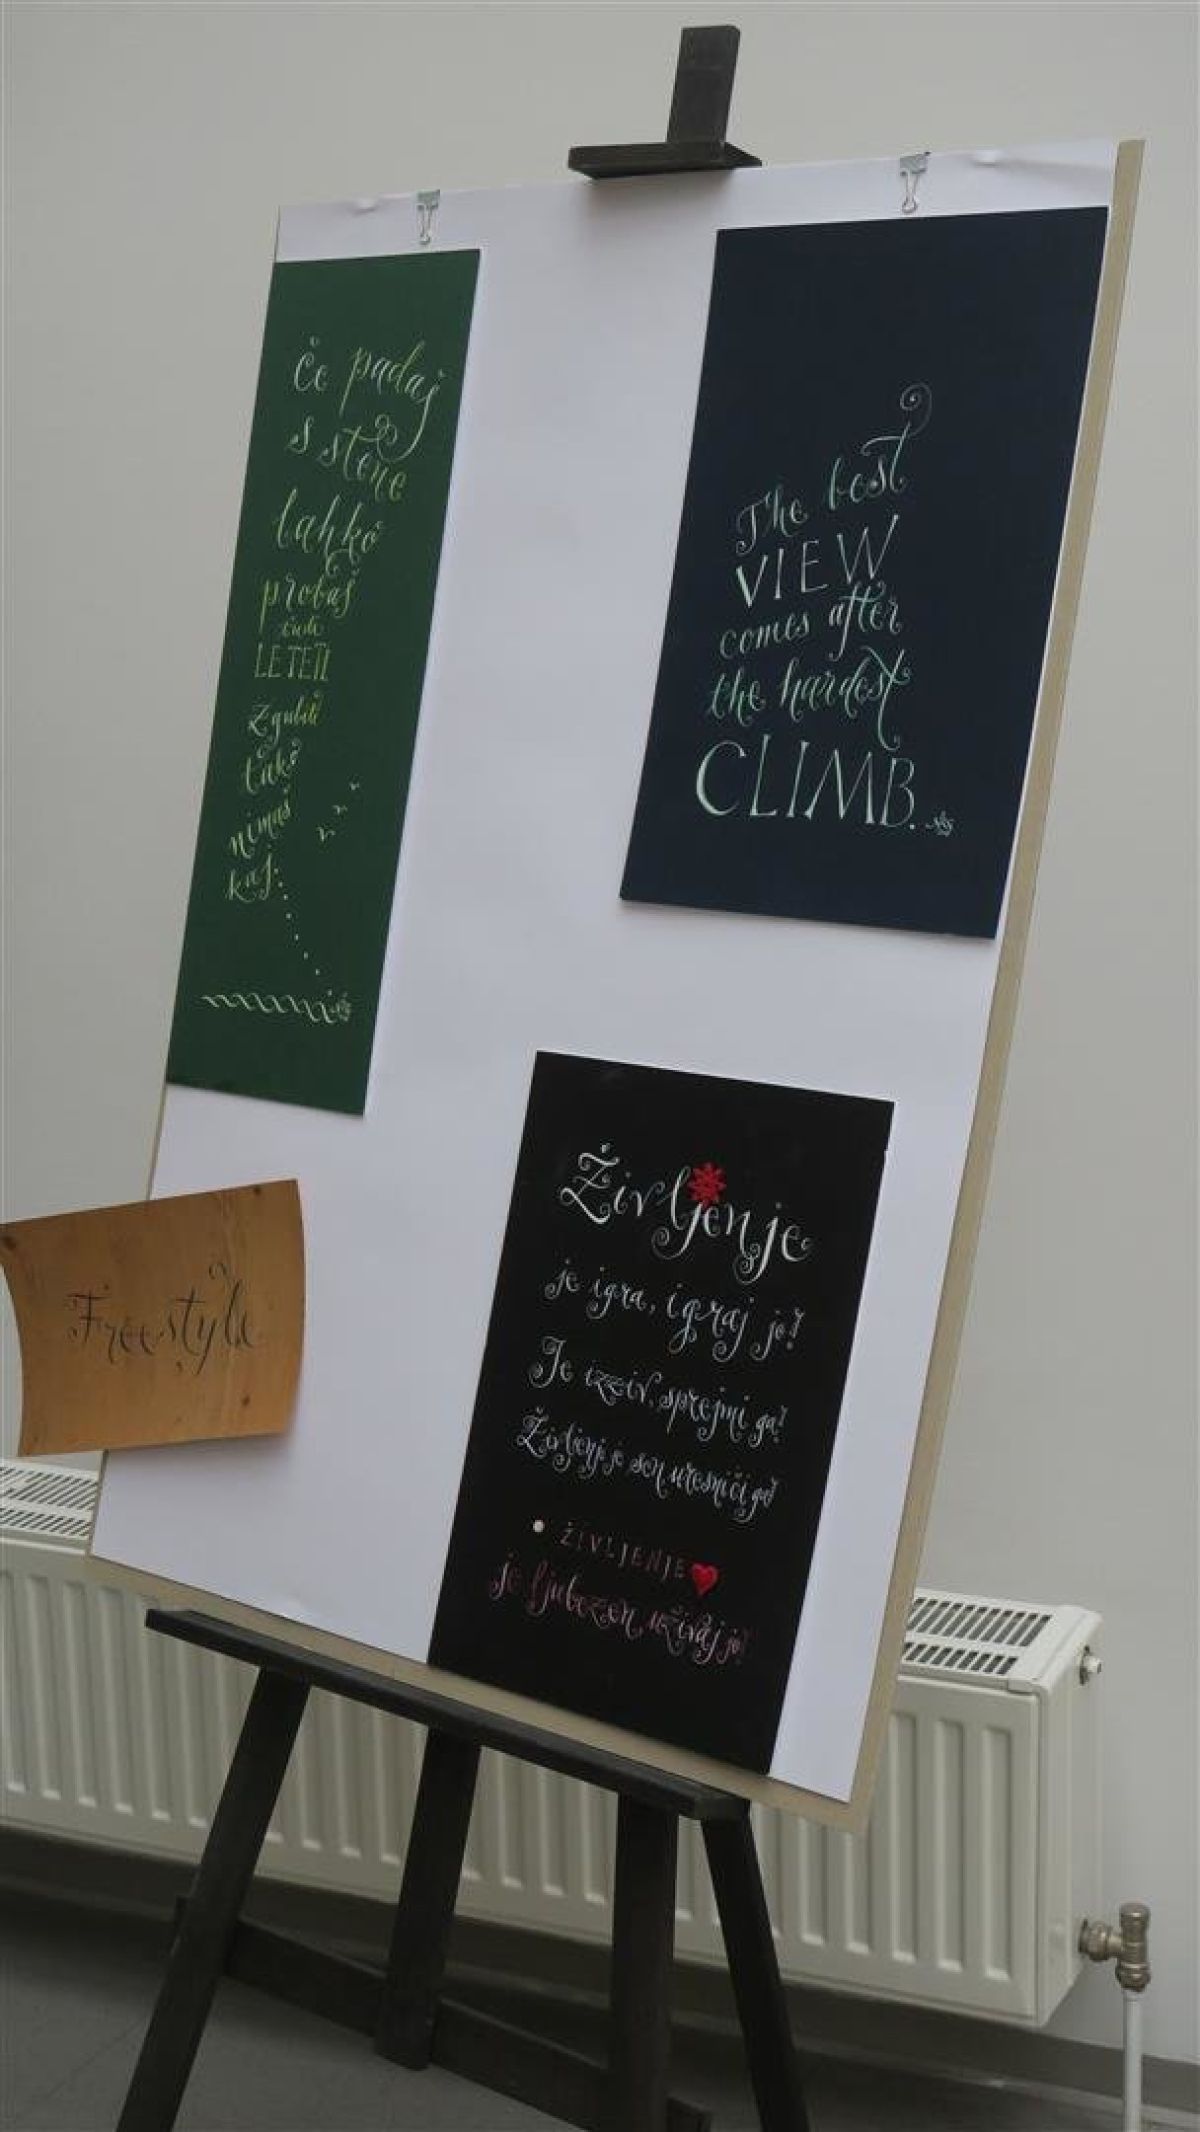 Če padaj
s stene
lahko
probaš
tudi
LETETI
Zgubit
tako
nimaš
kaj.
The best
VIEW
comes after
the hardest
CLIMB.
Freestyle
Življenje
je igra, igraj jo!
Je izziv, sprejmi ga!
Življenje je sen uresniči ga!
ŽIVLJENJE
je ljubezen, uživaj jo!